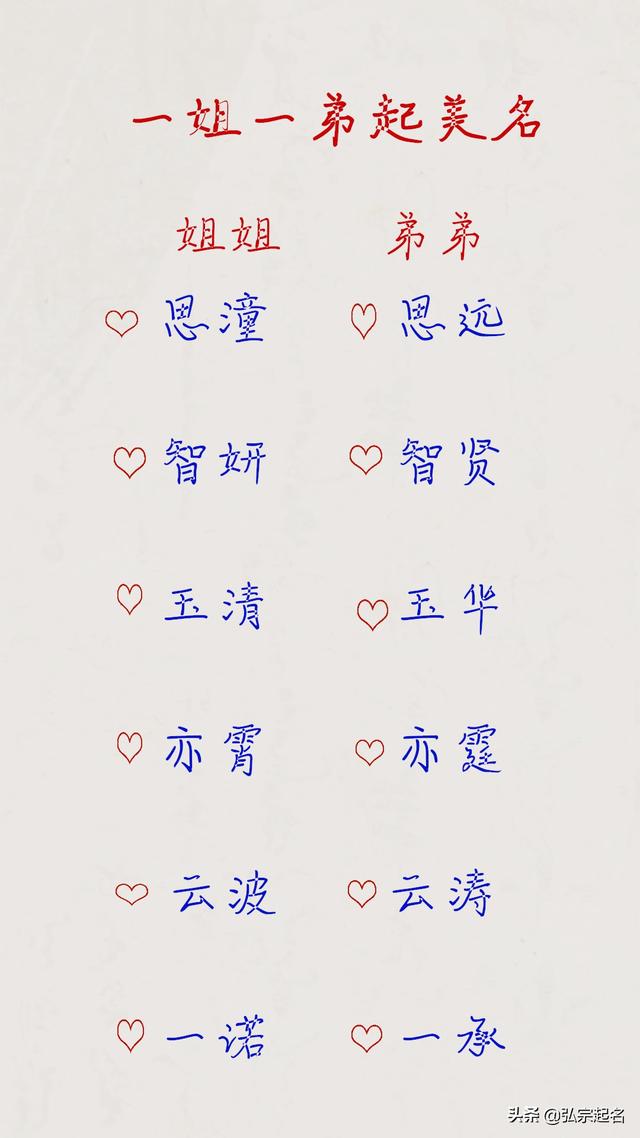 一姐一弟起美名
姐姐 弟弟
思潼 思远
智妍 智贤
玉清 玉华
亦霄 亦霆
云波 云涛
一诺 一承
头条 @弘宗起名